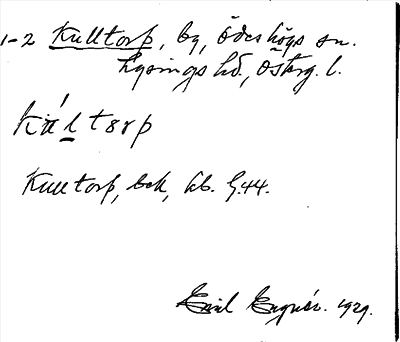 1-2 Kulltorp, by, Ödeshögs sn.
Lysings hd, Österg. l.
Kúltorp
Kulltorp, bok, kb. G.44.
Emil 1929.